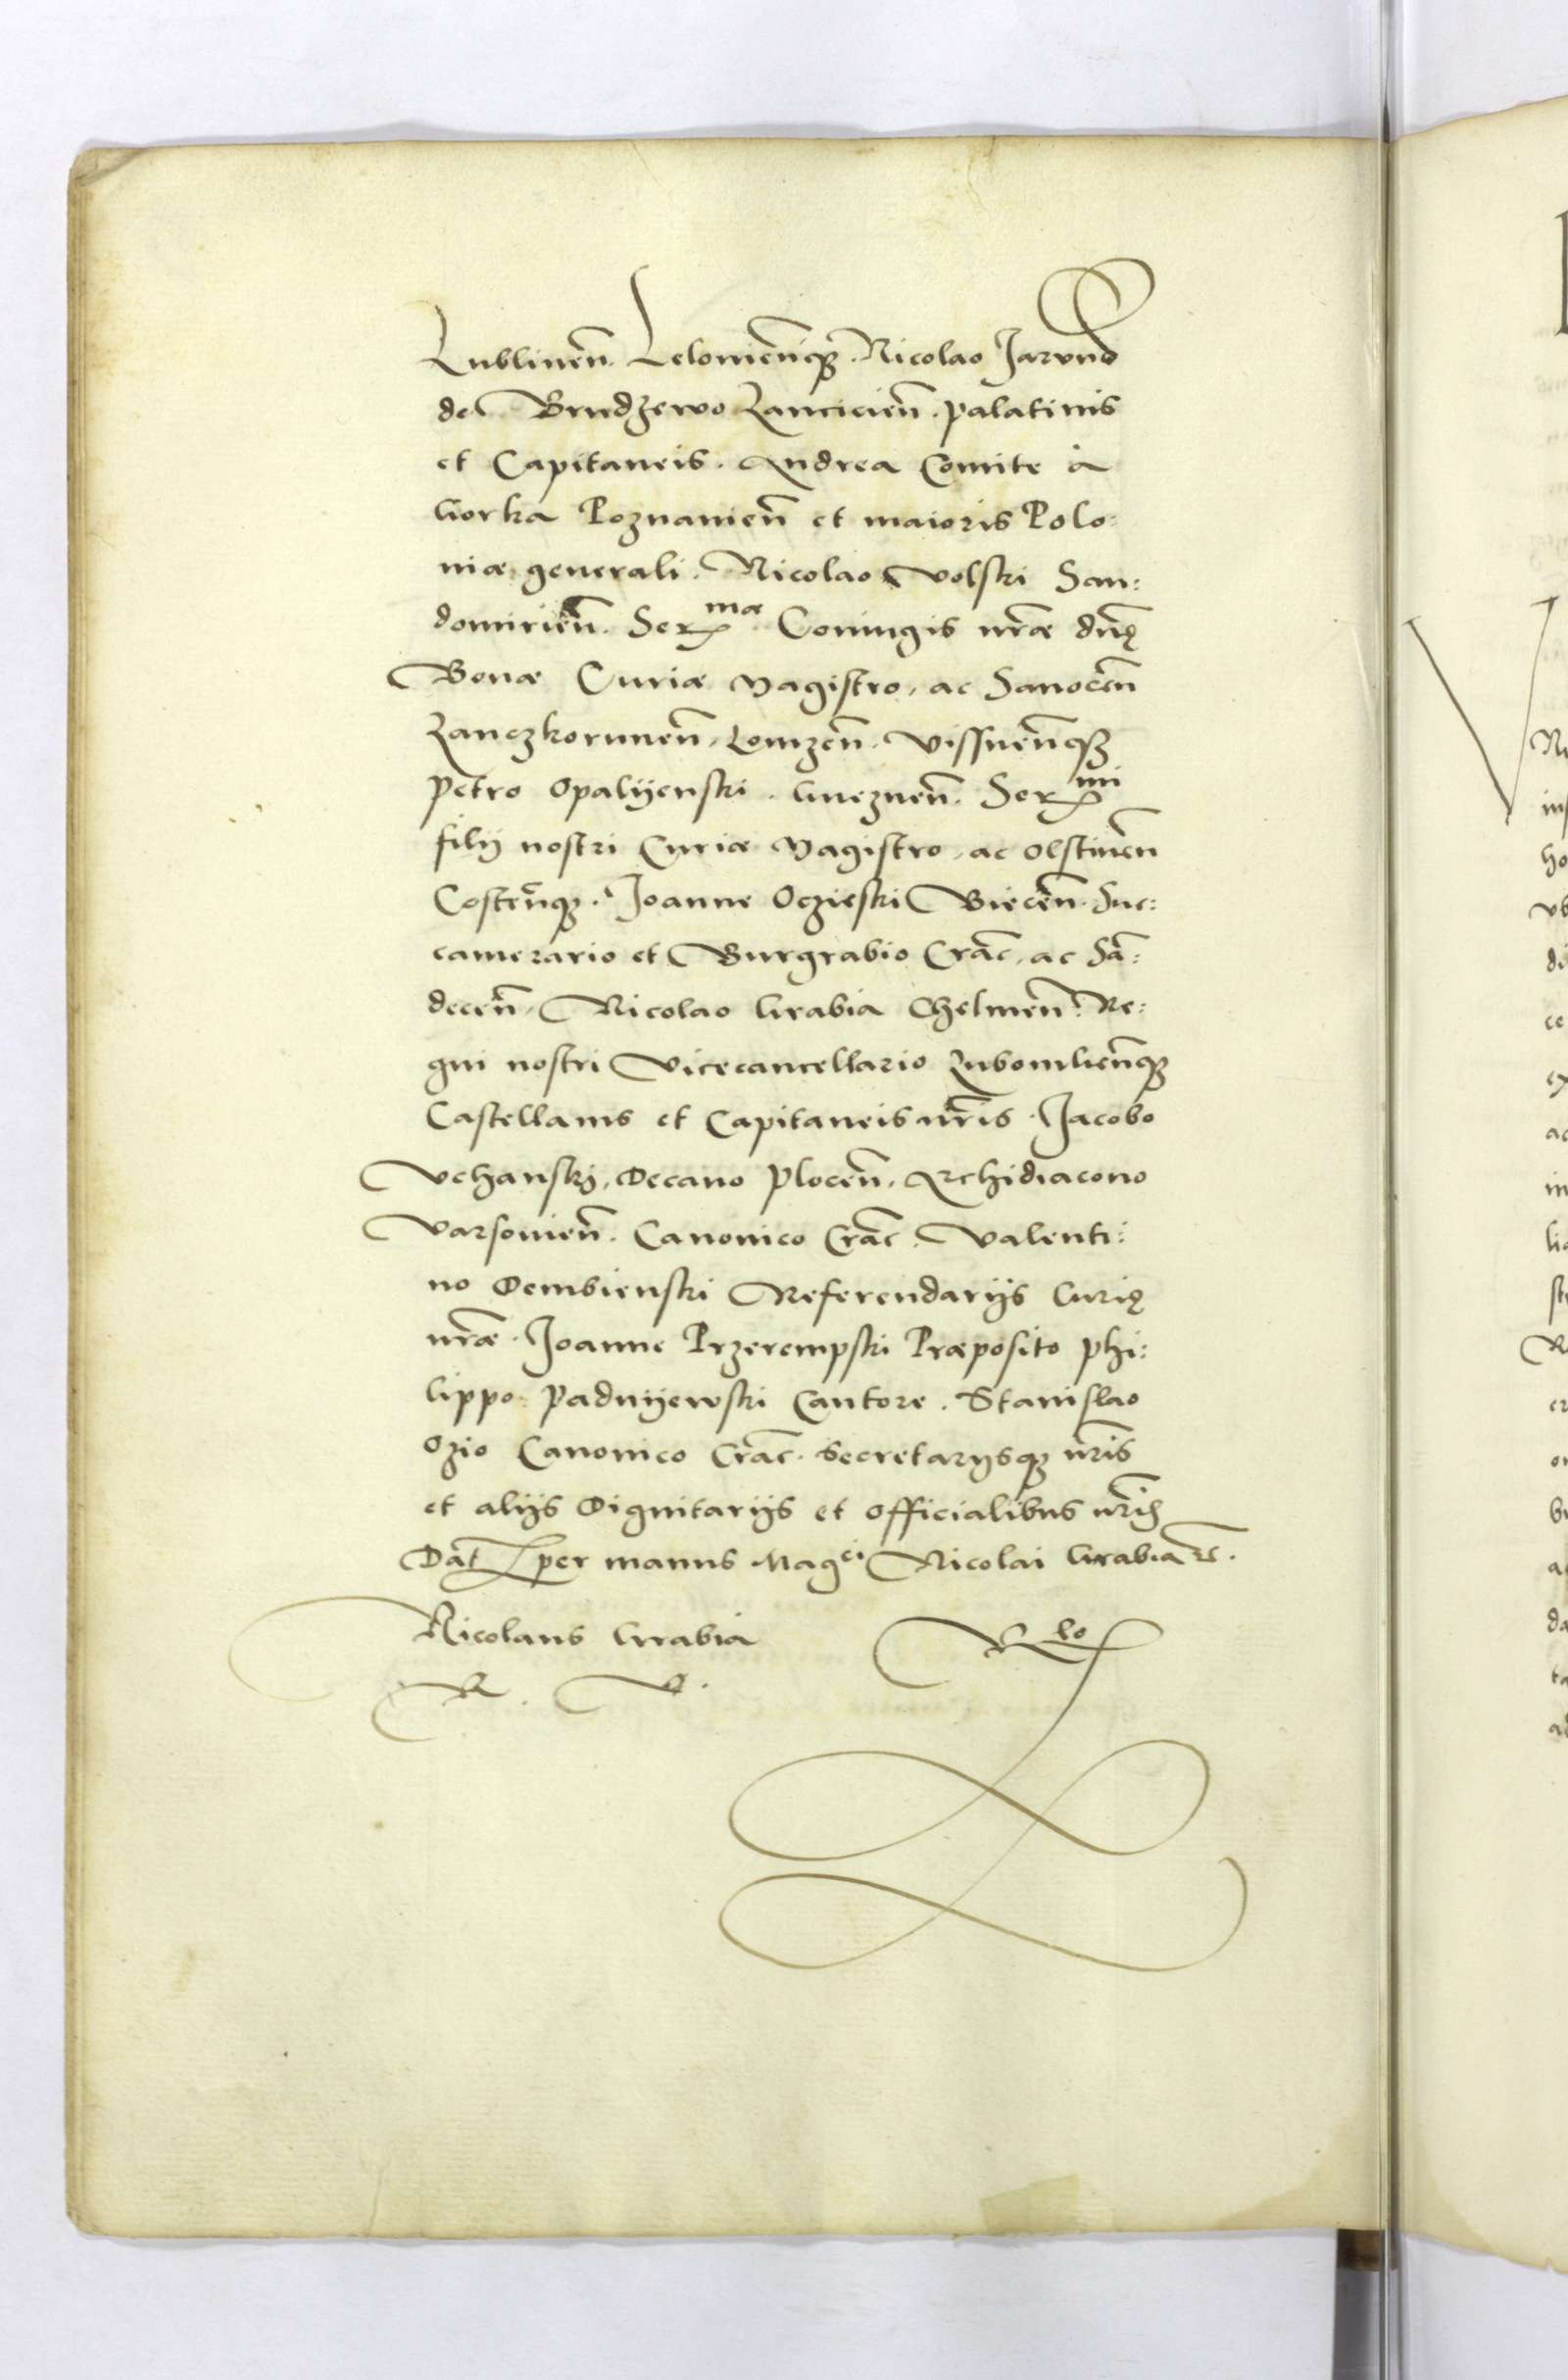 Lublineñ. Lelouieñqꝫ. Nicolao Jarvnd
de Brudzewo Lancicieñ. palatinis
et Capitaneis. Andrea Comite à
Gorka Poznanieñ et maioris Polo:
niæ generali. Nicolao Volski San:
domirieñ. Ser^mæ Coniugis nr̃æ dñę
Bonæ Curiæ Magistro, ac Sanoceñ
Lanczkoruneñ, Lomzeñ. Vissneñqꝫ
Petro Opalijenski. Gnezneñ. Ser^mi
filij nostri Curiæ Magistro, ac Olstineñ
Costeñqꝫ. Joanne Oczieski Bieceñ. Suc:
camerario et Burgrabio Crac̃, ac Sã:
deceñ, Nicolao Grabia Chelmeñ. Re:
gni nostri Vicecancellario Lubomlieñqꝫ
Castellanis et Capitaneis nr̃is. Jacobo
Vchanskj, Decano Ploceñ, Archidiacono
Varsouieñ. Canonico Crac̃. Valenti:
no Dembienski Referendarijs Curię
nr̃æ. Joanne Przerempski Præposito Phi:
lippo Padnijewski Cantore. Stanislao
Ozio Canonico Crac̃. Secretarijsqꝫ nr̃is
et alijs Dignitarijs et Officialibus nr̃is
Dat̃ per manus Mag^ci Nicolai Grabia ꝛc.
Nicolaus Grabia
R. V.